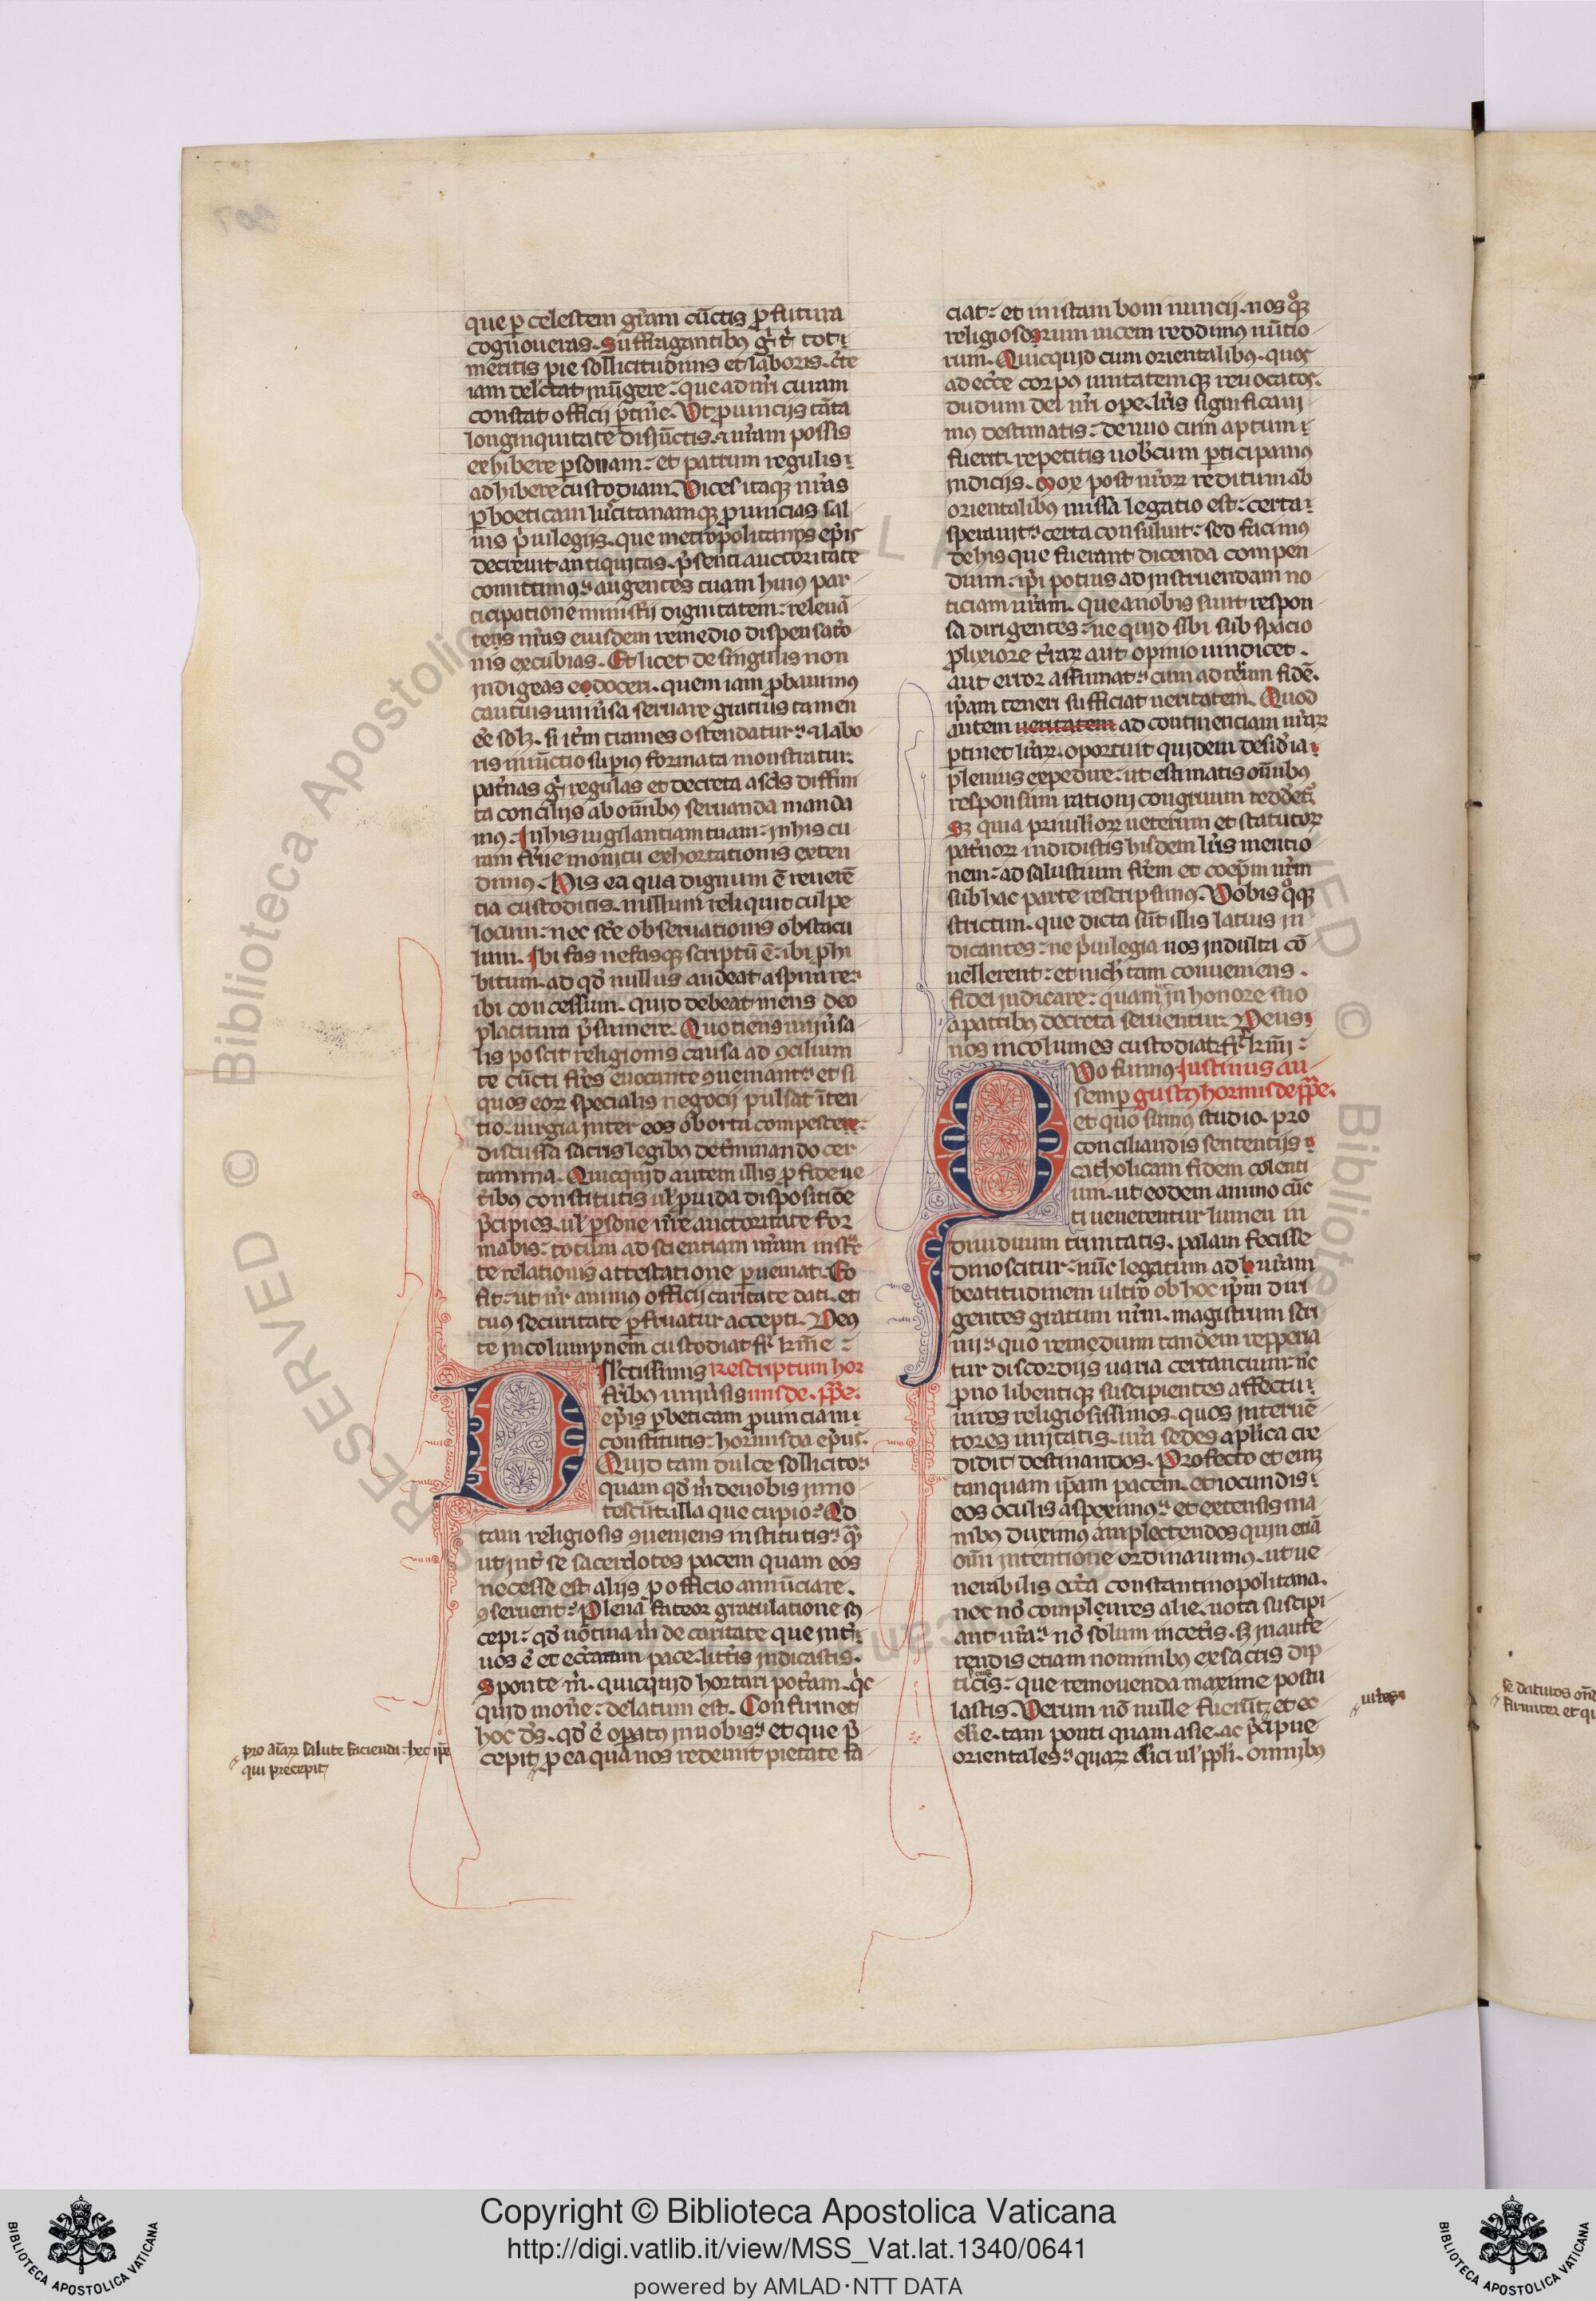 que ꝑ celestem gr̄am cūctis ꝓfutura
cognoueras. Suffragantibꝰ gͥ tͥ tot
meritis pie sollicitudinis et laboris. c̄te
iam delectat iniūgere: que ad nr̄i curam
constat officii ꝑtin̄e. Ut ꝓuincijs tāta
longinquitate disiūctis. et nr̄am possis
exhibere ꝑsonam: et patrum regulis
adhibere custodiam. Uices itaqꝫ nr̄as
ꝑ boeticam lucitanamqꝫ ꝓuincias sal
uis p̄uilegijs. que metropolitanis ep̄is
decreuit antiquitas. p̄senti auctoritate
com̄ittimꝰ: augentes tuam huius par
ticipatione ministerij dignitatem: releuā
tes nr̄as eiusdem remedio dispensatio
nis excubias. Et licet de singulis non
indigeas edoceri. quem iam ꝓbauimꝰ
cautius uniūsa seruare gratius tamen
eē solꝫ. si it̄m trames ostendatur: et labo
ris iniūctio supius formata monstratur.
pat̄nas gͥ regulas et decreta a scīs diffini
ta concilijs ab oīnibꝰ seruanda manda
mꝰ. In his uigilantiam tuam: in his cu
ram fr̄ne monitu exhortationis exten
dimꝰ. His ea qua dignum ē reuerē
tia custoditis. nullum reliquit culpe
locum: nec sc̄e obseruationis obstacu
lum. Ibi fas nefasqꝫ scriptū ē: ibi ꝓhi
bitum. ad qd̄ nullus audeat aspirare:
ibi concessum. quid debeat mens deo
placitura p̄sumere. Quotiens uniūsa
lis poscit religionis causa ad ꝯcilium
te cūcti fr̄es euocante ꝯueniant: et si
quos eoꝝ specialis negocij pulsat īten
tio. iurgia inter eos oborta compesce
discussa sacris legibus det̄minando cer
tamina. Quicquid autem illis ꝓ fide ue
t̄ibꝰ constitutis ul̄ ꝓuida dispositiōe
p̄cipies. ul̄ ꝑsone nr̄e auctoritate for
mabis: totum ad scientiam nr̄am instr̄c
te relationis attestatione ꝑueniat. Eo
fit: ut nr̄ animꝰ officij caritate dati. et
tuꝰ securitate ꝑfruatur accepti. Deus
te incolumpnem custodiat fr̄ km̄e:
Ilectissimis Rescriptum hor
fr̄ibꝰ uniūsis misde. ꝑꝑe.
ep̄is ꝑ beticam ꝓuinciam
constitutis: hormisda ep̄us.
Quid tam dulce sollicito:
quam qd̄ m̄ de uobis inno
tescūt: illa que cupio: Qd̄
tam religiosis ꝯueniens institutis: q̄m
ut int̄ se sacerdotes pacem quam eos
necesse est alijs ꝓ officio annūciare.
ꝯseruent: Plena fateor gratulatione sus
cepi: qd̄ uotiua m̄ de caritate que int̄
uos ē et ecc̄arum pace. litt̄is indicastis.
Sponte m̄. quicquid hortari pot̄am. q̄c
quid mon̄e: delatum est. Confirmet
hoc dn̄s. qd̄ ē opatꝰ in uobis: et que p̄
cepit ꝑ ea qua nos redemit pietate fa
pro aīaꝝ salute facienda: hec ip̄e
qui precepit
ciat: et in istam boni nuncij. nos q̊qꝫ
religiosorum uicem reddimꝰ nūtio
rum. Quicquid cum orientalibꝰ. quos
ad ecc̄e corpꝰ unitatemqꝫ reuocatos.
dudum dei nr̄i ope. lr̄is significaui
mꝰ destinatis: denuo cum aptum
fuerit. repetitis uobiscum ꝑticipamꝰ
indicijs. Mox post nr̄oꝝ reditum ab
orientalibꝰ missa legatio est: certa
sperauit: certa consuluit: sed facimꝰ
de his que fuerant dicenda compen
dium: ip̄i potius ad instruendam no
ticiam nr̄am. que a nobis sunt respon
sa dirigentes: ne quid sibi sub spacio
ꝓlixiore t̄raꝝ aut opinio uindicet.
aut error assumat: cum ad rerum fidē.
ip̄am teneri sufficiat ueritatem. Quod
autem ueritatem ad continenciam nr̄aꝝ
ꝑtinet lr̄aꝝ. oportuit quidem desid̄ia
plenius expedire: ut estimatis oīnibus
responsum rationi congruum redd̄etꝰ
Sꝫ quia priuil̄ioꝝ ueterum et statutoꝝ
pat̄noꝝ indidistis hisdem lr̄is mentio
nem: ad salustium fr̄em et coep̄m nr̄m
sub hac parte rescripsimꝰ. Uobis q̊qꝫ
strictim. que dicta sūt illis latius in
dicantes: ne p̄uilegia nos indulta cō
uellerent: et nich̄ tam conueniens.
fidei iudicare: quam in honore suo
a patribꝰ decreta seruentur. Deus
nos incolumes custodiat. fr̄ km̄i:
Uo fuimꝰ Iustinus au
semp gustꝰ hormisde ꝑꝑe.
et quo sumꝰ studio. pro
conciliandis sententijs
catholicam fidem colenti
um. ut eodem animo cūc
ti uenerentur lumen in
diuiduum trinitatis. palam fecisse
dinoscitur: nūc legatum ad ur̄am
beatitudinem ultro ob hoc ip̄m diri
gentes gratum nr̄m. magistrum scri
nij: quo remedium tandem repperia
tur discordijs uaria certancium: nc̄
ꝓno libentiqꝫ suscipientes affectu
uiros religiosissimos. quos interuē
tores unitatis. ur̄a sedes aplica cre
didit destinandos. Profecto et enim
tanquam ip̄am pacem. et iocundis
eos oculis aspeximꝰ: et extensis ma
nibus duximꝰ amplectendos quin etiā
om̄i intentione ordinauimꝰ. ut ue
nerabilis ecc̄a constantinopolitana.
nec nō complures alie. uota suscipi
ant ur̄a: nō solum in cet̄is. sꝫ in aufe
rendis etiam nominibꝰ ex sacris dip
ticis: que remouenda maxime postu
lastis. Uerum nō nulle fuerūt et ec
clie. tam ponti quam asie. ac p̄cipue
orientales: quaꝝ clici ul̄ ppli. omnibꝰ
urbes
Copyright © Biblioteca Apostolica Vaticana
http://digi.vatlib.it/view/MSS_Vat.lat.1340/0641
powered by AMLAD·NTT DATA
BIBLIOTECA APOSTOLICA VATICANA
BIBLIOTECA APOSTOLICA VATICANA